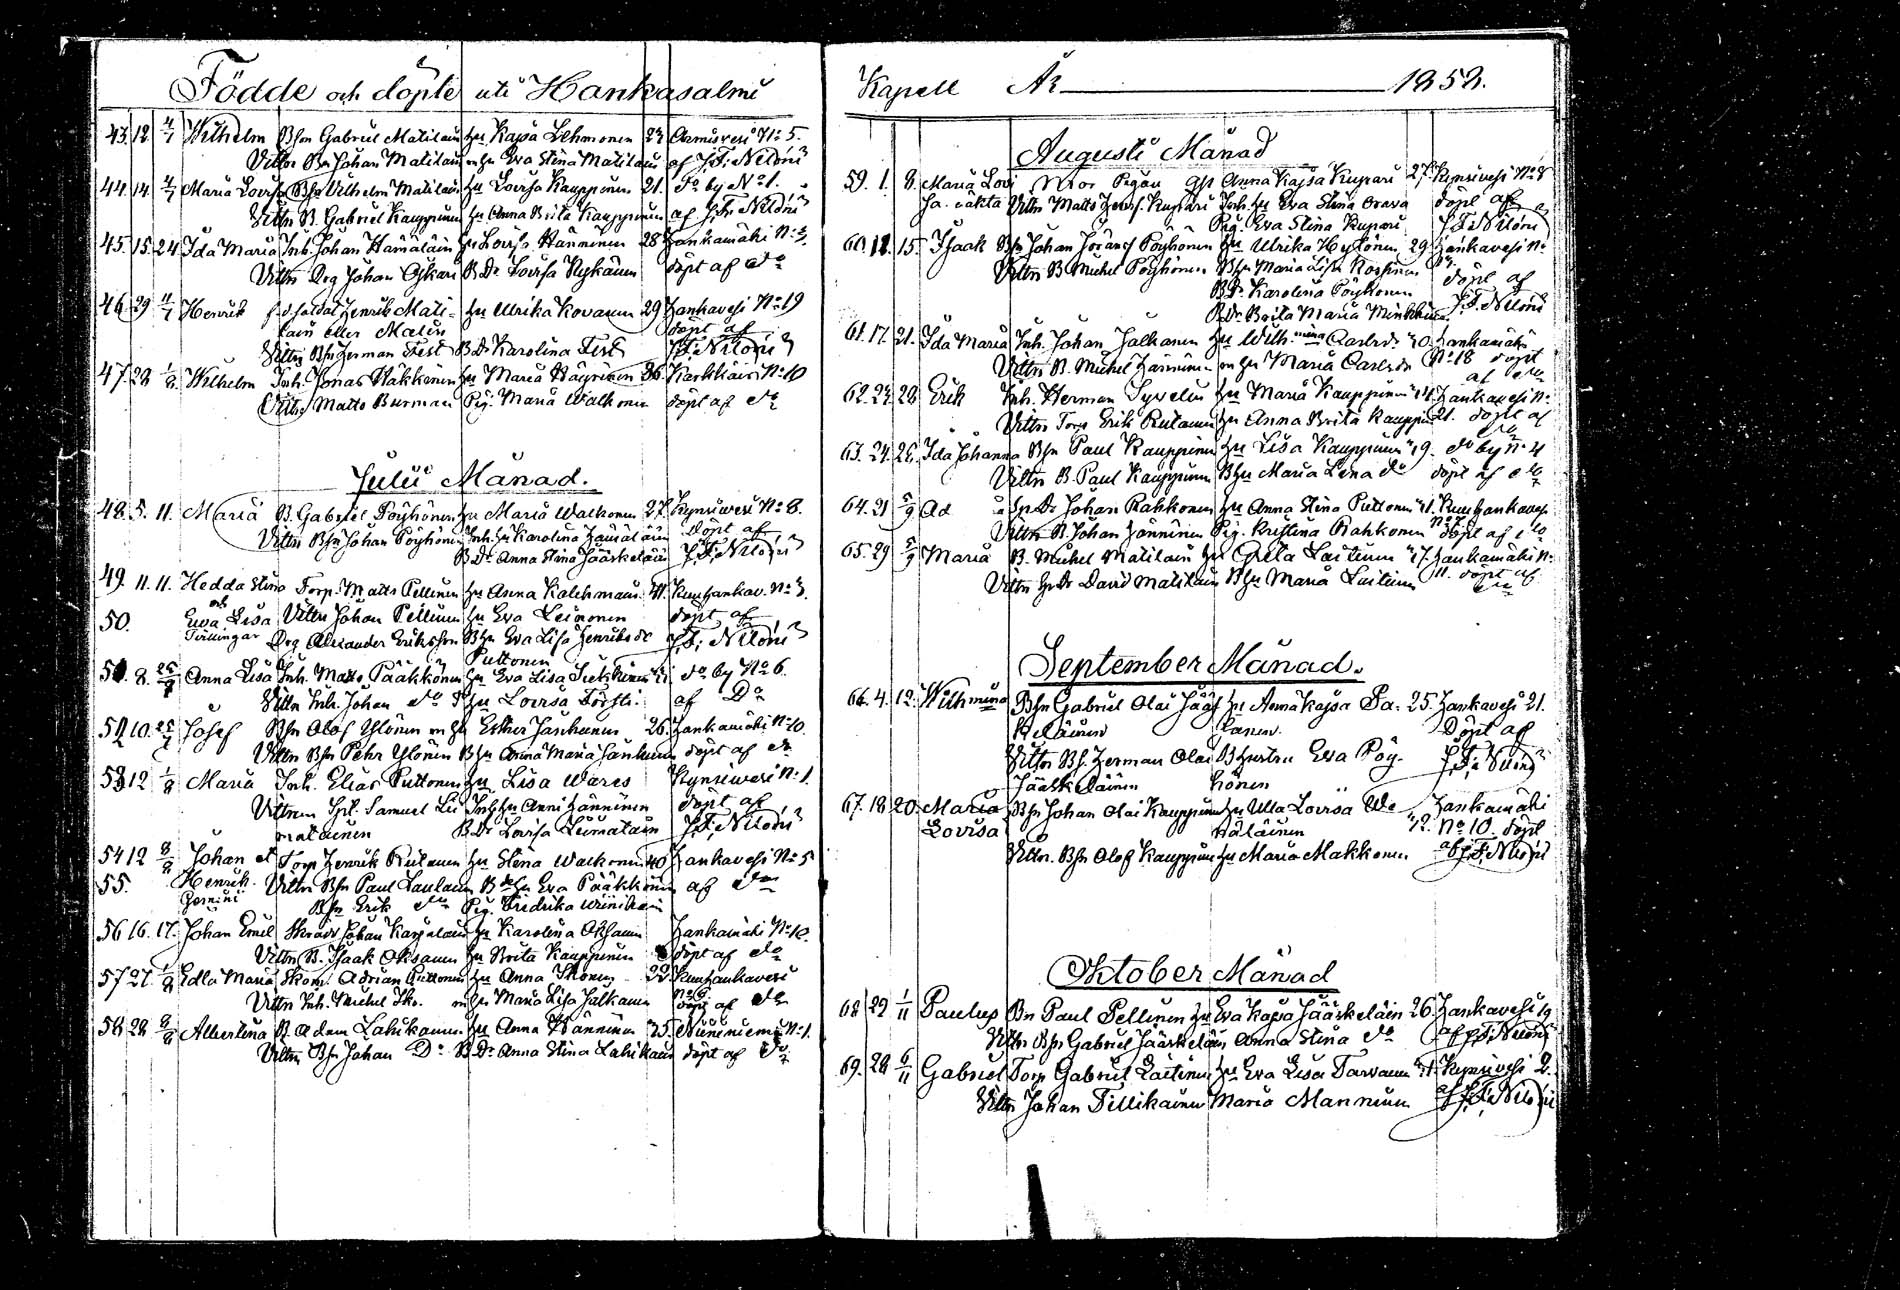 Födde och döpte uti Hankasalmi
43. 12. 4/7 Wilhelm Bsn Gabriel Matilain hu Kajsa Lehmonen 23 Armisvesi No 5.
Vittn Bn Johan Matilain m hu Eva Stina Matilain af J.F. Nilóni
44. 14. 4/7 Maria Lovisa Bsn Vilhelm Matilain hu Lovisa Kauppinen 21. do by No 1.
Vittn B. Gabriel Kauppinen hu Anna Brita Kauppinen af J.F. Nilóni
45. 15. 24 Ida Maria Inh. Johan Hämäläin hu Lovisa Hänninen 28 Hankamäki No 3.
Vittn Drg Johan Oskari B.Dr Lovisa Nykänen döpt af do
46 29 11/7 Henrik f.d. soldat Henrik Mati- hu Ulrika Kovanen 29 Hankavesi No 19
lain eller Malin döpt af
Vittn Bsn Herman Fest B.Dr Karolina Fest J.F. Nilóni
47. 28 1/8 Wilhelm Inh. Jonas Häkkinen hu Maria Häyrinen 36. Karkkais No 10
Vittn Matts Burman Pig. Maria Walkonen döpt af do
Julii Månad.
48. 5. 11. Maria B. Gabriel Pöyhönen hu Maria Walkonen 27. Kynsivesi No 8.
Vittn Bsn Johan Pöyhönen Inh. hu Karolina Hämäläin döpt af
B.Dr Anna Stina Jääskeläin J.F. Nilóni
49. 11. 11. Hedda Stina Torp. Matts Pellinen hu Anna Kalehmain 41. Kuuhankav. No 3.
och
50. Ewa Lisa Vittn Johan Pellinen hu Eva Leinonen döpt af
Tvillingar Drg Alexander Eriksson B hu Eva Lisa Henriksdr J.F. Nilóni
Puttonen
51. 8. 25/7 Anna Lisa Inh. Matts Pääkkönen hu Eva Lisa Tirkkinen do by No 6.
Vittn Inh. Johan do hu Lovisa Torsti. af Do
52 10. 25/7 Josef Bsn Olof Ylönen m hu Esther Janhunen 26. Hankamäki No 10.
Vittn Bsn Pehr Ylönen B hu Anna Maria Janhunen döpt af do
53 12 1/8 Maria Inh. Elias Puttonen hu Lisa Wares Kynsivesi No 1.
Vittnen Spl. Samuel Lii Inh hu Anni Hänninen döpt af
matainen B.Dr Lovisa Liimatain J.F. Nilóni
54 12 8/8 Johan et Torp Henrik Rutanen hu Stina Walkonen 40 Hankavesi No 5
55. Henrik. Vittn Bsn Paul Laulain B hu Eva Pääkkönen af do
Gemini Bsn Erik do Pig. Fredrika Wiinikain
56 16. 17. Johan Emil Skradd Johan Karjalain hu Karolina Oksanen Hankamäki No 10.
Vittn B. Isaak Oksanen hu Brita Kauppinen döpt af do
57 21 1/8 Edla Maria Skom. Adrian Puttonen hu Anna Ikonen 22 Kuuhankavesi
Vittn Inh. Michel Iko. m hu Maria Lisa Jalkanen No 6 döpt af do
58 28 8/8 Albertina B. Adam Lahikainen hu Anna Hänninen 25. Niininiemi No 1.
Vittn Bsn Johan Do B.Dr Anna Stina Lahikain döpt af do
Kapell År 1858.
Augusti Månad
59. 1. 8. Maria Lovi Mor Pigan ogi Anna Kajsa Kupari 27. Kynsivesi No 8
sa. oäkta Vittn Matts Henrs. Kupari Inh. hu Eva Stina Orava döpt af
Pig. Eva Stina Kupari J.F. Nilóni
60. 11. 15. Isaak Bsn Johan Pöyhönen hu Ulrika Hytönen 29. Hankavesi No
Vittn B Michel Pöyhönen B hu Maria Lisa döpt af
B.Dr. Karolina Pöyhönen
B.Dr Brita Maria Minkkinen J.F. Nilóni
61. 17. 21. Ida Maria Inh. Johan Jalkanen hu Wilhelmina Carlsdr 40. Hankamäki
Vittn B. Michel Hänninen m hu Maria Carlsdr No 18 döpt
af do
62. 23. 28. Erik Inh. Herman hu Maria Kauppinen 41. Hankavesi No
Vittn Torp Erik Rutanen hu Anna Brita Kauppin 21. döpt af
do
63. 24. 28. Ida Johanna Bsn Paul Kauppinen hu Lisa Kauppinen 19. do by No 4
Vittn B. Paul Kauppinen B hu Maria Lena do döpt af do
64. 31 5/9 Ad Johan Rahkonen hu Anna Stina Puttonen 41. Kuuhankavesi
Vittn B. Johan Hänninen Pig. Kristina Rahkonen No 7 döpt af do
65. 29 5/9 Maria B. Michel Matilain hu Greta Laitinen 27. Hankamäki No
Vittn David Matilain B hu Maria Laitinen 11. döpt af
do
September Månad.
66. 4. 12. Wilhmina Bsn Gabriel Olai Jääs hu Anna Kajsa Pa- 25. Hankavesi 21.
keläinen kanen. Döpt af
Vittn Bs. Herman Olai B hustru Eva Pöy- J.F. Nilóni
Jääskeläinen hönen
67. 18 20. Maria Bsn Johan Olai Kauppinen hu Ulla Lovisa We Hankamäki
Lovisa näläinen 42. No 10. döpt
Vittn. Bsn Olof Kauppinen hu Maria Makkonen af J.F. Nilóni
Oktober Månad
68 29 1/11 Paulus Bn Paul Pellinen hu Eva Kajsa Jääskeläin 26. Hankavesi 19
Vittn Bsn Gabriel Jääskeläin Anna Stina do af J.F. Nilóni
69. 28 6/11 Gabriel Torp Gabriel Laitinen hu Eva Lisa Tarvainen 41. Kynsivesi 2.
Vittn Johan Tillikainen Maria Manninen af J.F. Nilóni